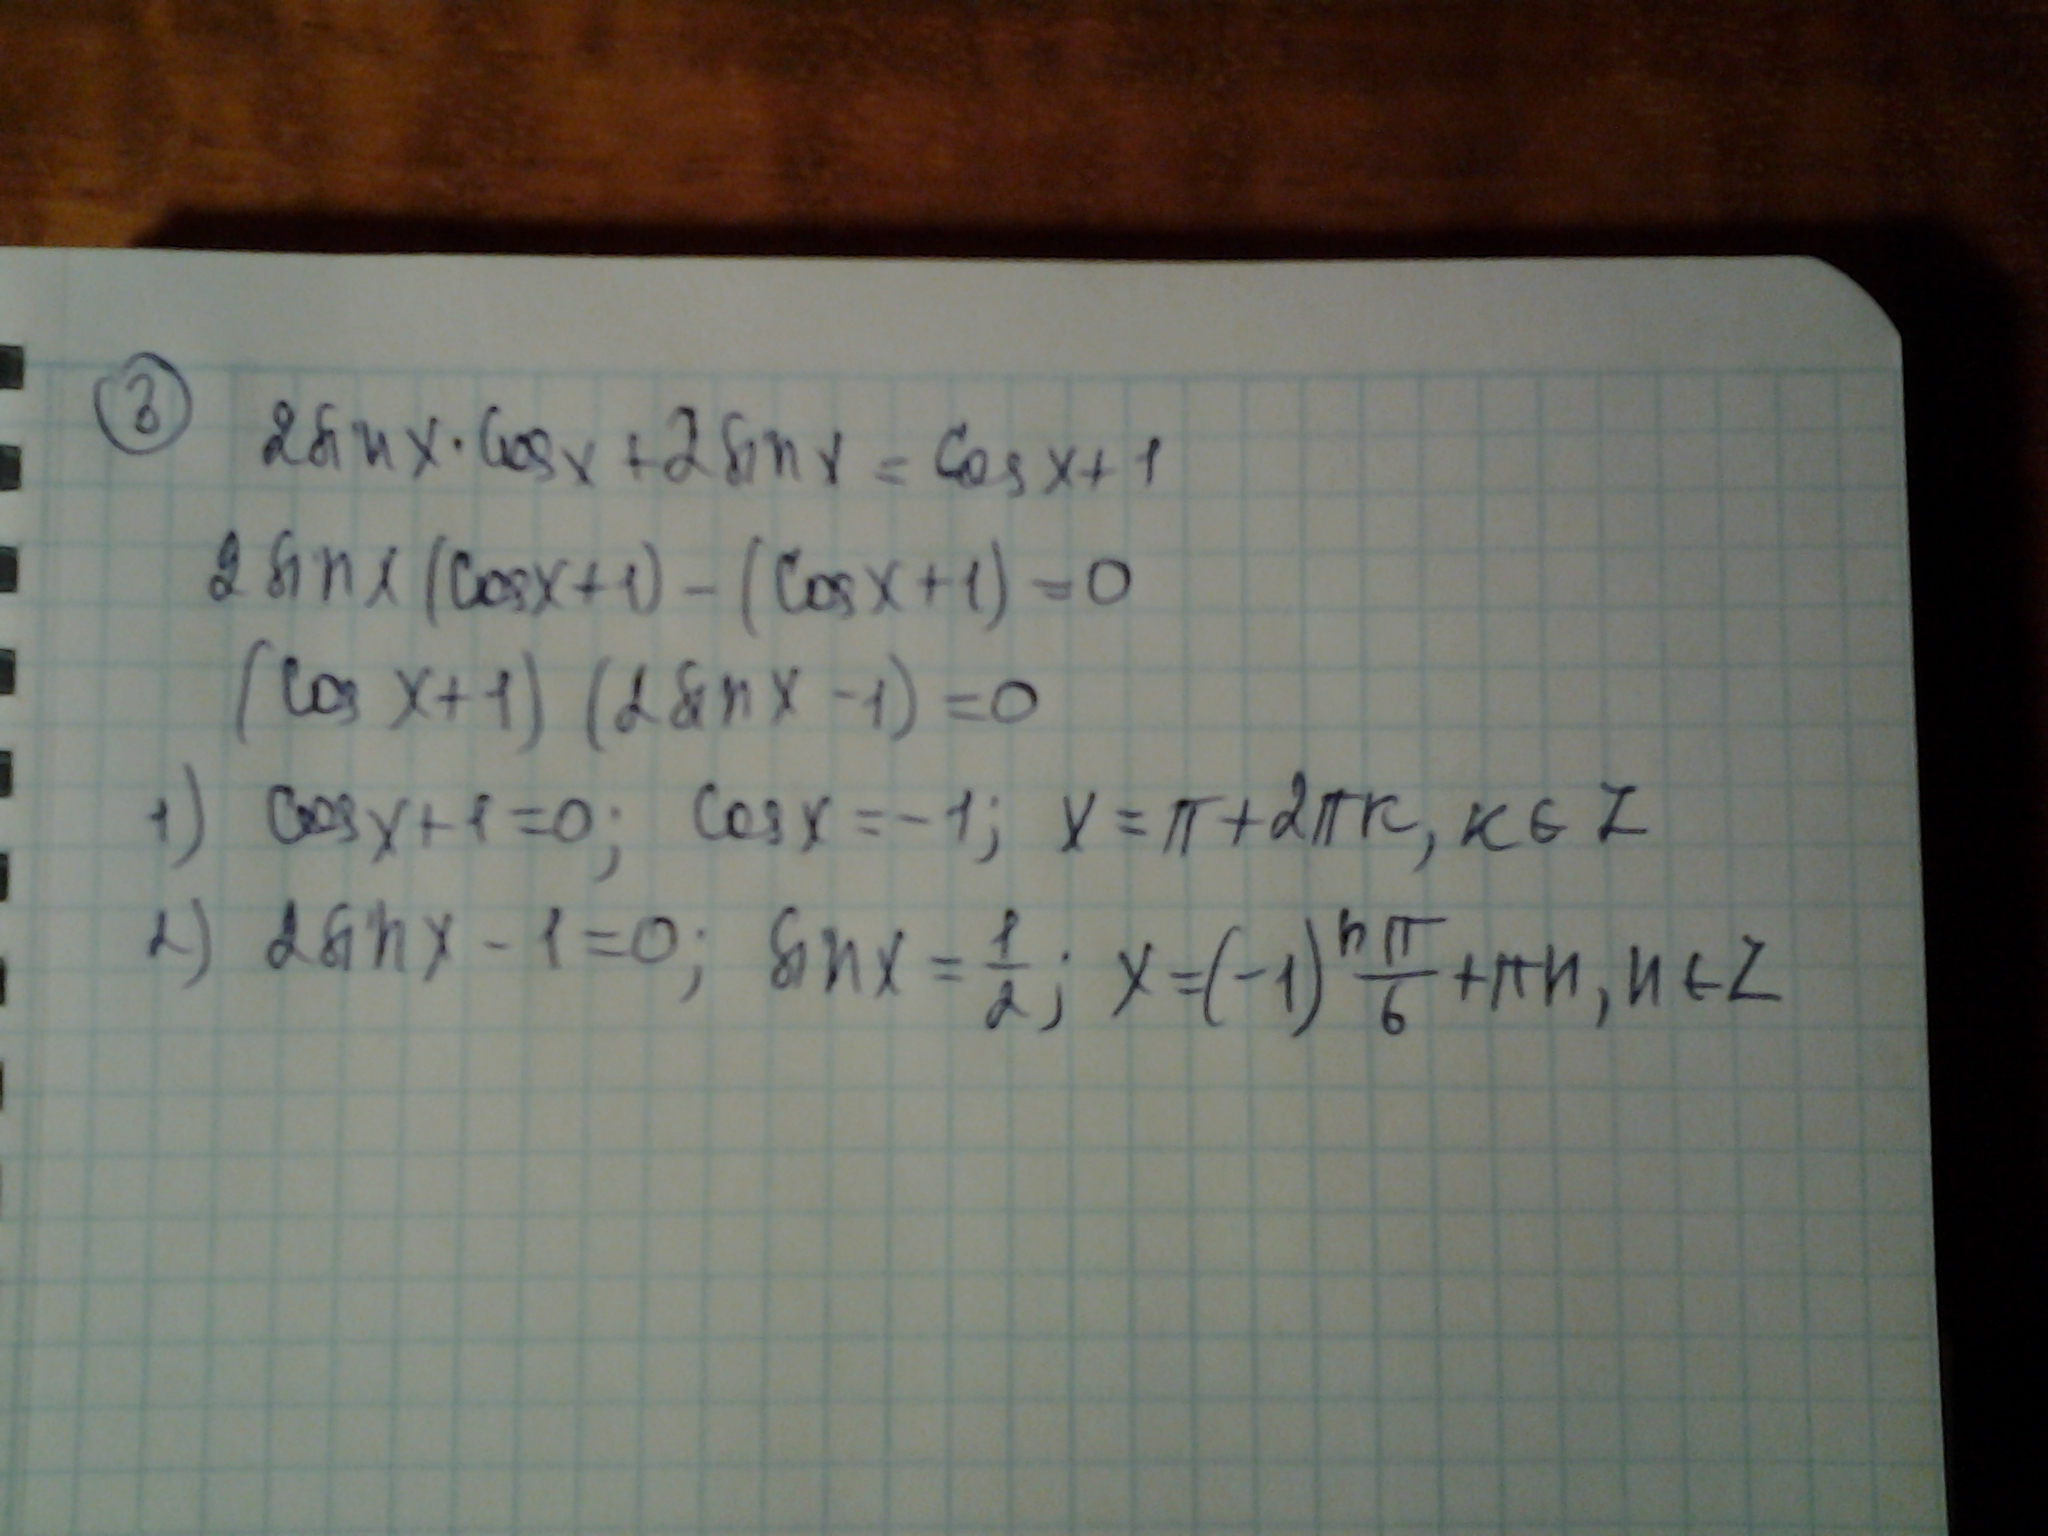 ③ 2sinx·cosx+2sinx=cosx+1
2sinx(cosx+1)-(cosx+1)=0
(cosx+1)(2sinx-1)=0
1) cosx+1=0; cosx=-1; x=π+2πк, к∈Z
2) 2sinx-1=0; sinx=1/2; x=(-1)ⁿπ/6+πn, n∈Z